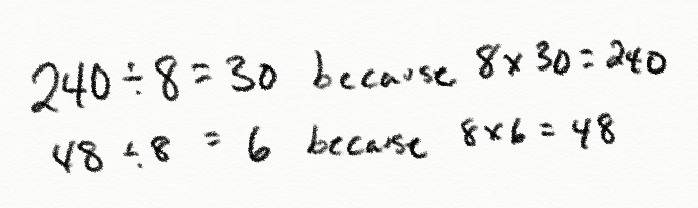 240 ÷ 8 = 30 because 8 x 30 = 240
48 ÷ 8 = 6 because 8 x 6 = 48